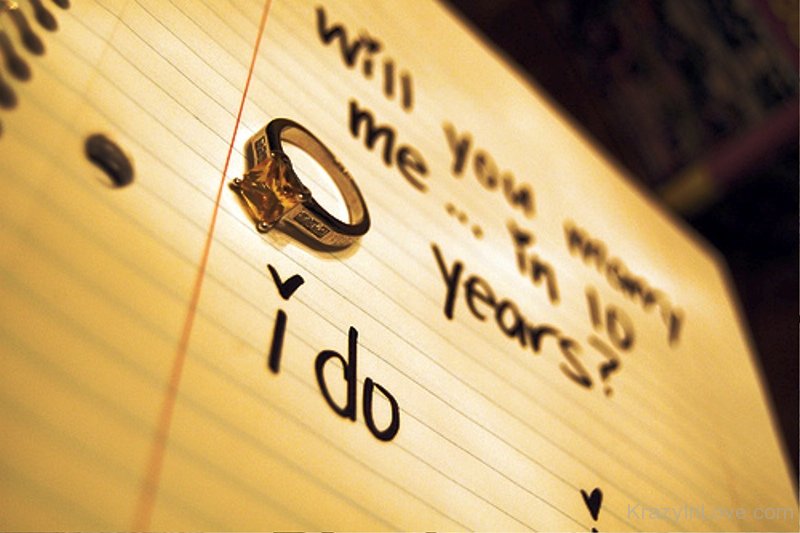 will you marry
me... in 10
years?
i do
i
KrazyInLove.com